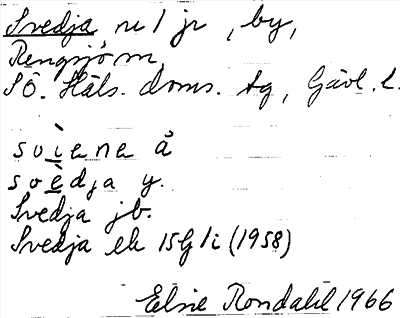 Svedja nr 1 jr , by,
Rengsjö sn,
SÖ. Häls. doms. tg, Gävl. l.
svìena å
svèdja y.
Svedja jb.
Svedja ek 15G 1i (1958)
Elsie Rondahl 1966